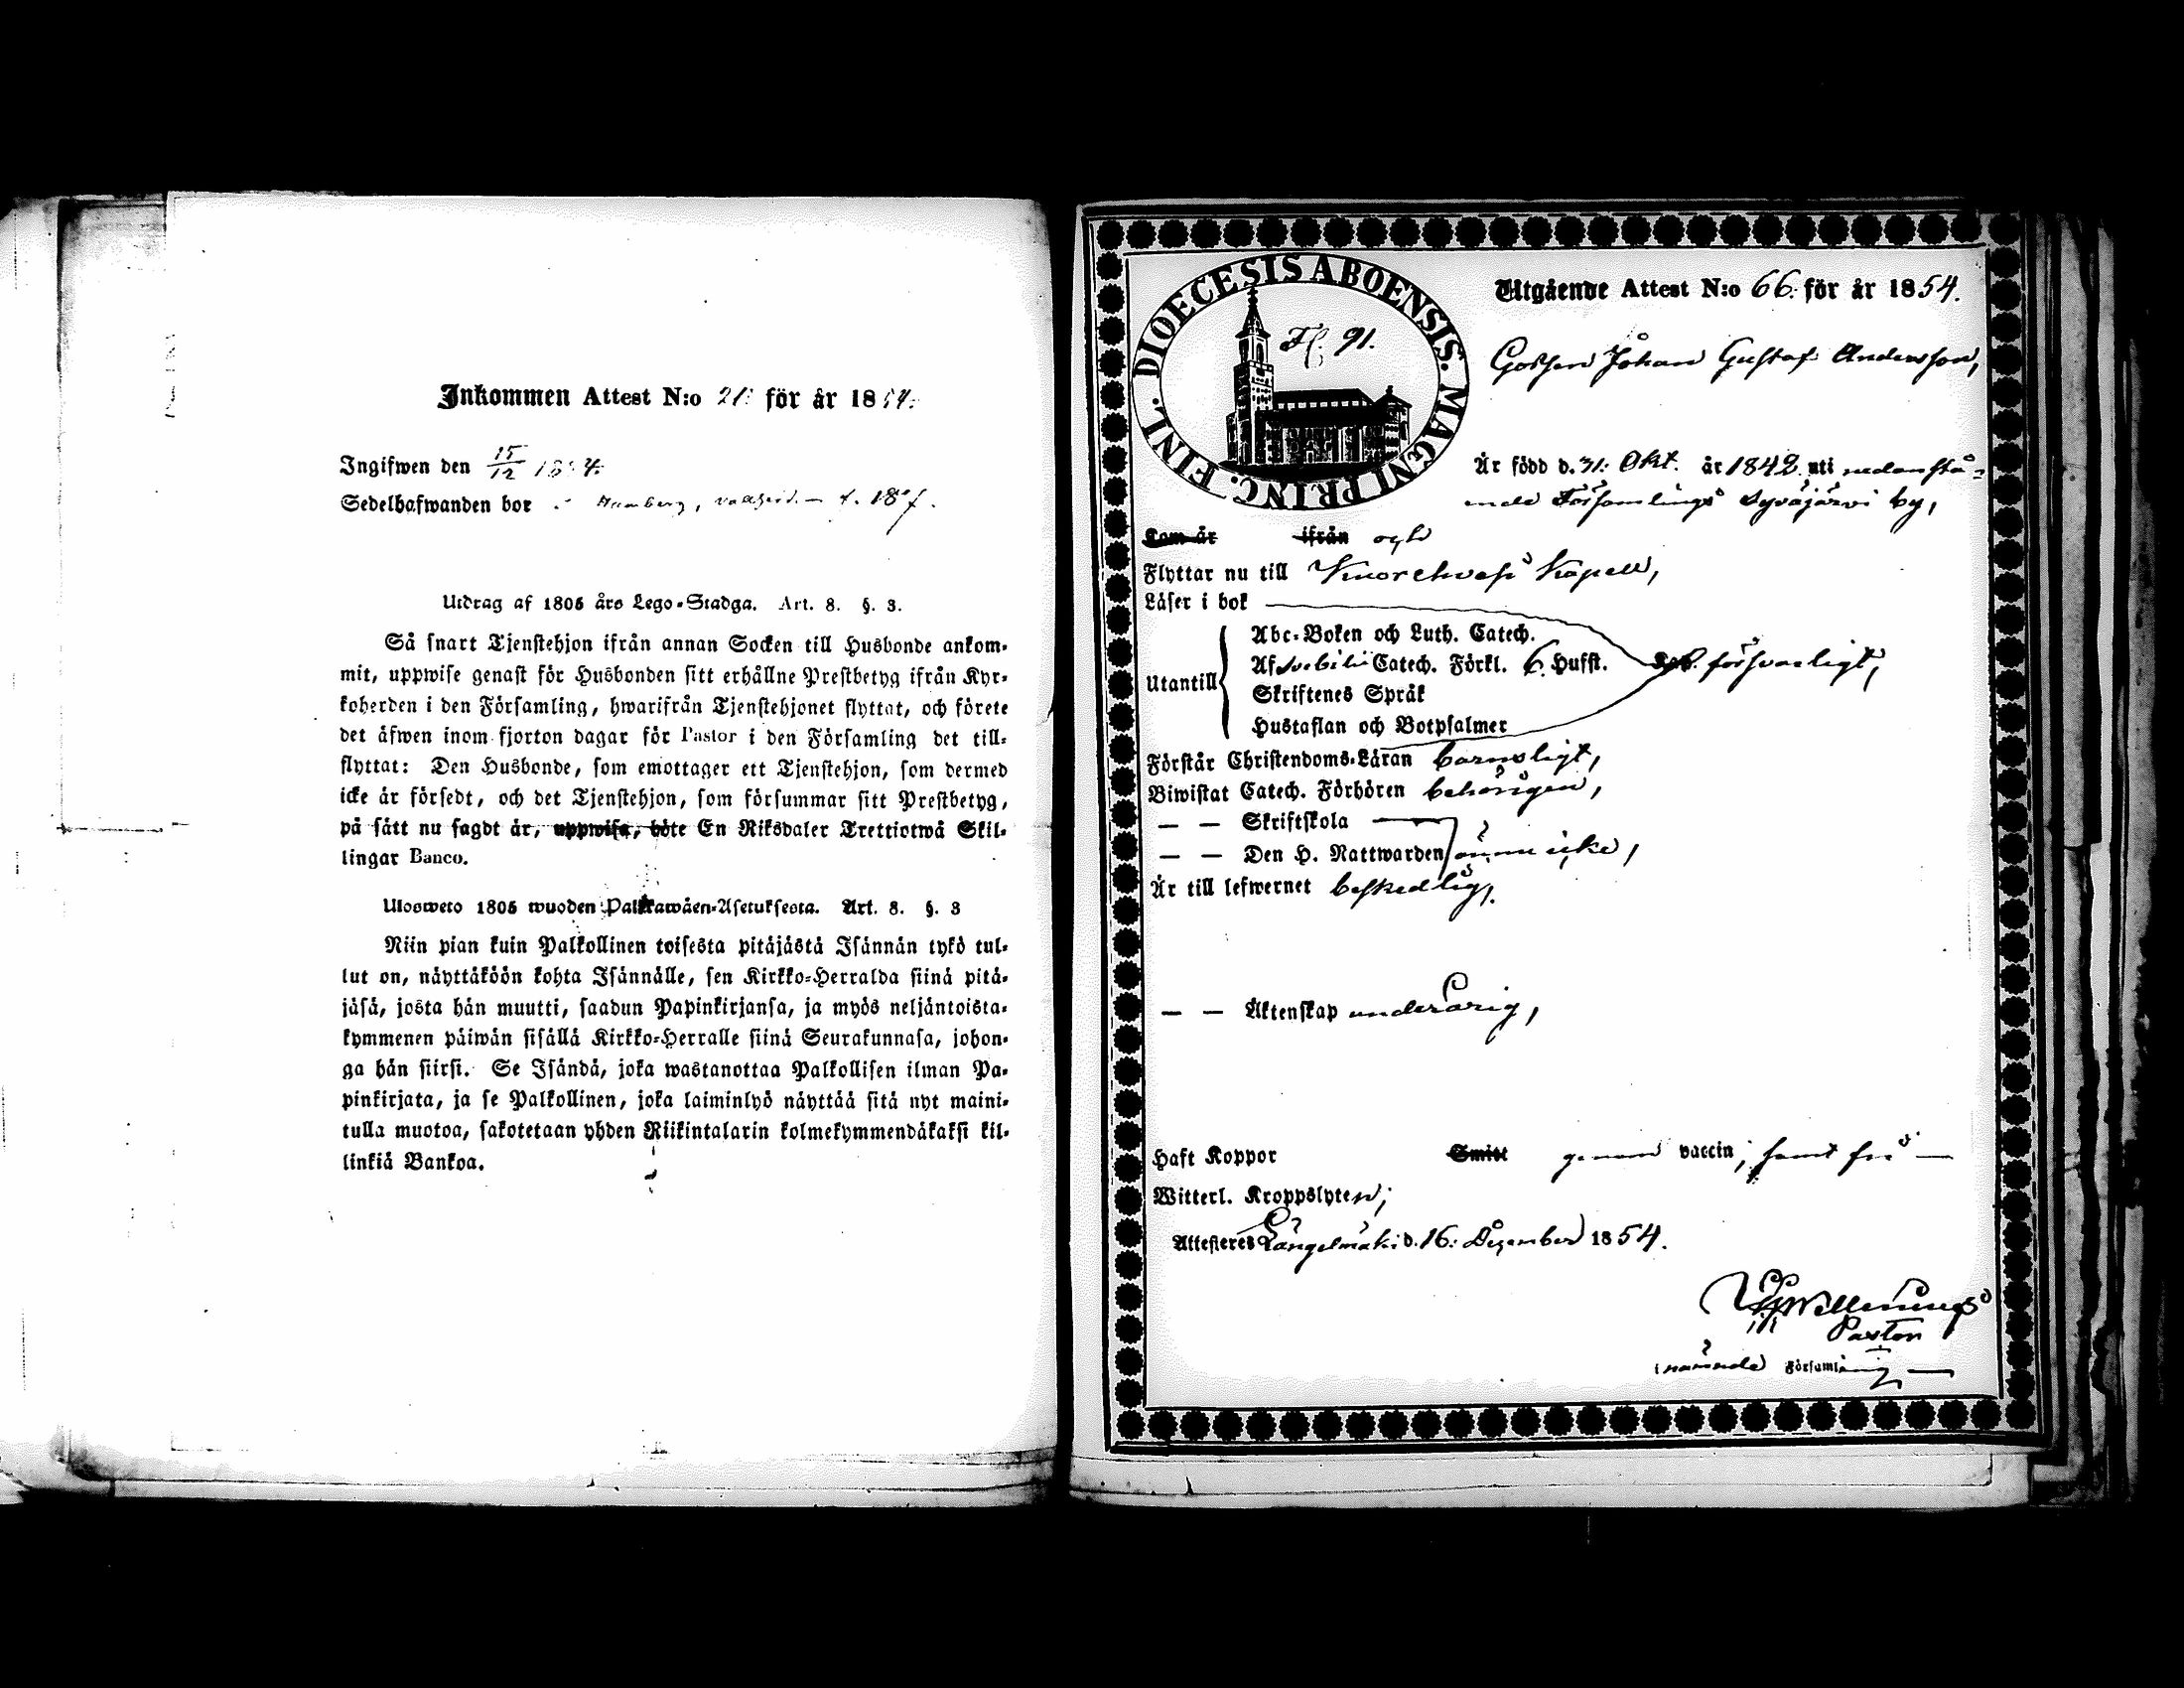 Inkommen Attest N:o 21: för år 1854.
Ingifwen den 15/12 1854.
Sedelhafwanden bor
Utdrag af 1805 års Lego-Stadga. Art. 8. §. 3.
Så snart Tjenstehjon ifrån annan Socken till Husbonde ankom-
mit, uppwise genast för Husbonden sitt erhållne Prestbetyg ifrån Kyr-
koherden i den Församling, hwarifrån Tjenstehjonet flyttat, och förete
det äfwen inom fjorton dagar för Pastor i den Församling det till-
flyttat: Den Husbonde, som emottager ett Tjenstehjon, som dermed
icke är försedt, och det Tjenstehjon, som försummar sitt Prestbetyg,
på sätt nu sagdt är, uppwisa, böte En Riksdaler Trettiotwå Skil-
lingar Banco.
Ulosweto 1805 wuoden Palkkawäen-Asetuksesta. Art. 8. §. 3
Niin pian kuin Palkollinen toisesta pitäjästä Isännän tykö tul-
lut on, näyttäköön kohta Isännälle, sen Kirkko-Herralda siinä pitä-
jäsä, josta hän muutti, saadun Papinkirjansa, ja myös neljäntoista-
kymmenen päiwän sisällä Kirkko-Herralle siinä Seurakunnasa, johon-
ga hän siirsi. Se Isändä, joka wastanottaa Palkollisen ilman Pa-
pinkirjata, ja se Palkollinen, joka laiminlyö näyttää sitä nyt maini-
tulla muotoa, sakotetaan yhden Riikintalarin kolmekymmendäkaksi kil-
linkiä Bankoa.
DIOECESIS ABOENSIS. MAGNI PRINC. FINL.
Fl. 91.
Utgående Attest N:o 66. för år 1854.
Gossen Johan Gustaf Andersson,
Är född d. 31: Okt. år 1842. uti nedanstå-
ende Församlings Syväjärvi by,
Kom år ifrån och
Flyttar nu till Kuorehvesi Kapell,
Läser i bok
Utantill
Abc-Boken och Luth. Catech.
Af Svebilii Catech. Förkl. 6. Hufst. försvarligt,
Skriftenes Språk
Hustaflan och Botpsalmer
Förstår Christendoms-Läran barnsligt,
Biwistat Catech. Förhören behörigen,
— — Skriftskola
— — Den H. Nattwarden ännu icke,
Är till lefwernet beskedlig,
— — Äktenskap underårig,
Haft Koppor Smitt genom vaccin, samt frå —
Witterl. Kroppslyten;
Attesteres Längelmäki d. 16: Dezember 1854.
Pastor
i nämnde Församling